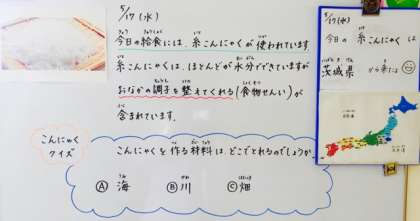 5/17(水)
今日の給食には、糸こんにゃくが使われています。
糸こんにゃくは、ほとんどが水分でできていますが
おなかの調子を整えてくれる(食物せんい)が
含まれています。
こんにゃく
クイズ
こんにゃくを作る材料は、どこでとれるのでしょうか。
Ⓐ 海 Ⓑ 川 Ⓒ 畑
5/17(水)
今日の 糸こんにゃくは
茨城県から来たよ